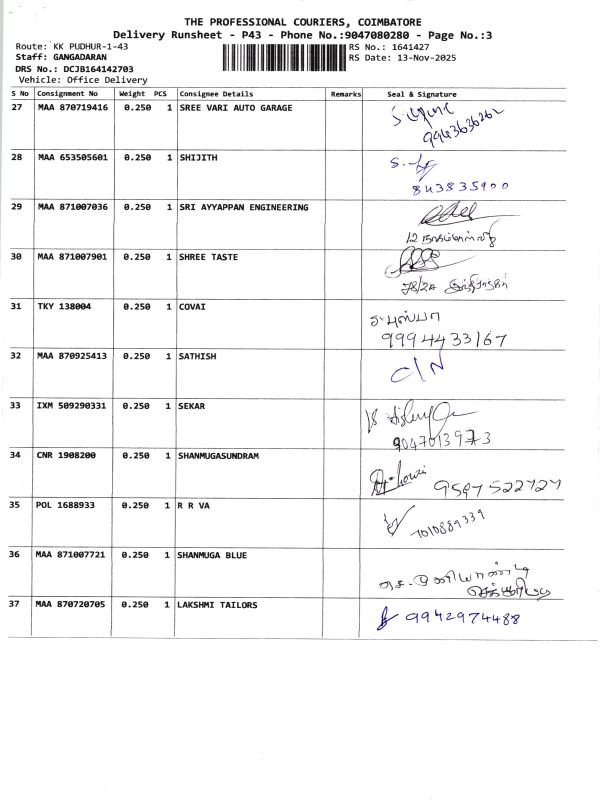 THE PROFESSIONAL COURIERS, COIMBATORE
Delivery Runsheet - P43 - Phone No.:9047080280 - Page No.:3
Route: KK PUDHUR-1-43 RS No.: 1641427
Staff: GANGADARAN RS Date: 13-Nov-2025
DRS No.: DCJB164142703
Vehicle: Office Delivery
S No Consignment No Weight PCS Consignee Details Remarks Seal & Signature
27 MAA 870719416 0.250 1 SREE VARI AUTO GARAGE
9943636262
28 MAA 653505601 0.250 1 SHIJITH
843835900
29 MAA 871007036 0.250 1 SRI AYYAPPAN ENGINEERING
12
30 MAA 871007901 0.250 1 SHREE TASTE
31 TKY 138004 0.250 1 COVAI
ர. புஸ்பா
9994433167
32 MAA 870925413 0.250 1 SATHISH
C/N
33 IXM 509290331 0.250 1 SEKAR
9047013973
34 CNR 1908200 0.250 1 SHANMUGASUNDRAM
9597522727
35 POL 1688933 0.250 1 R R VA
7010889339
36 MAA 871007721 0.250 1 SHANMUGA BLUE
37 MAA 870720705 0.250 1 LAKSHMI TAILORS
9942974488